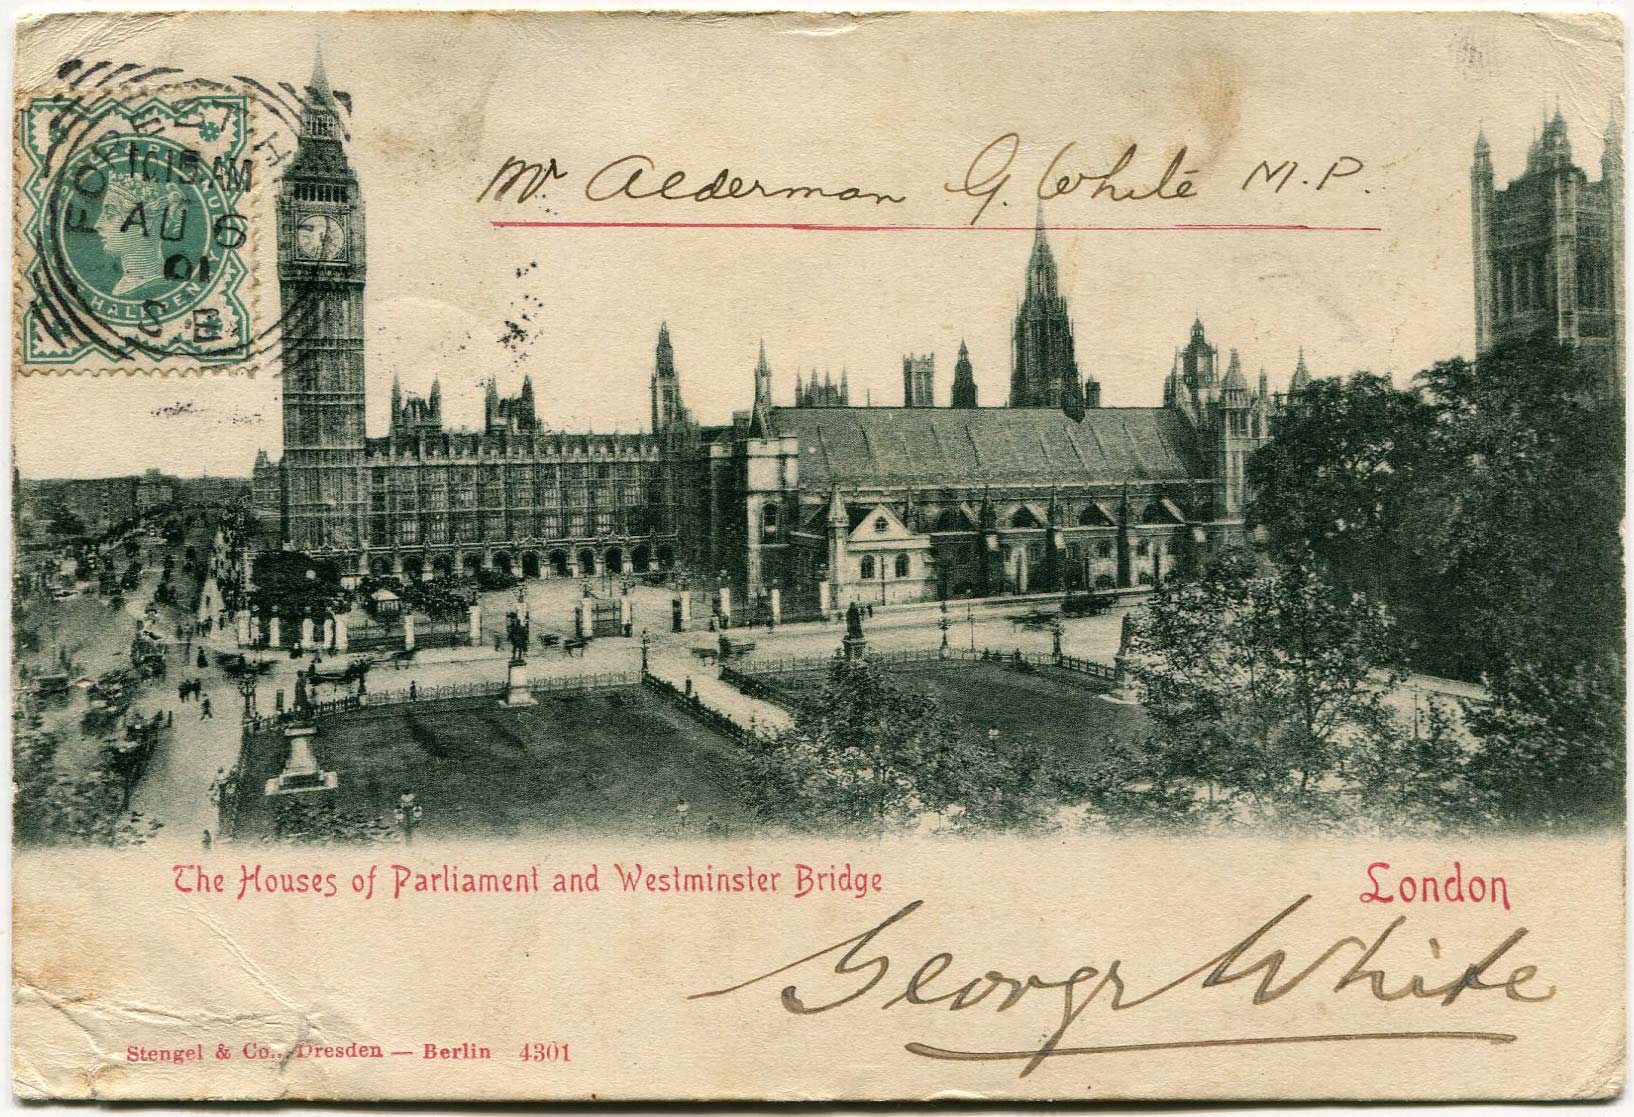 FOREST-HILL
10.15 AM
AU 6
01
S.E
HALFPENNY
Mr Alderman G. White M.P.
The Houses of Parliament and Westminster Bridge
London
George White
Stengel & Co., Dresden — Berlin 4301